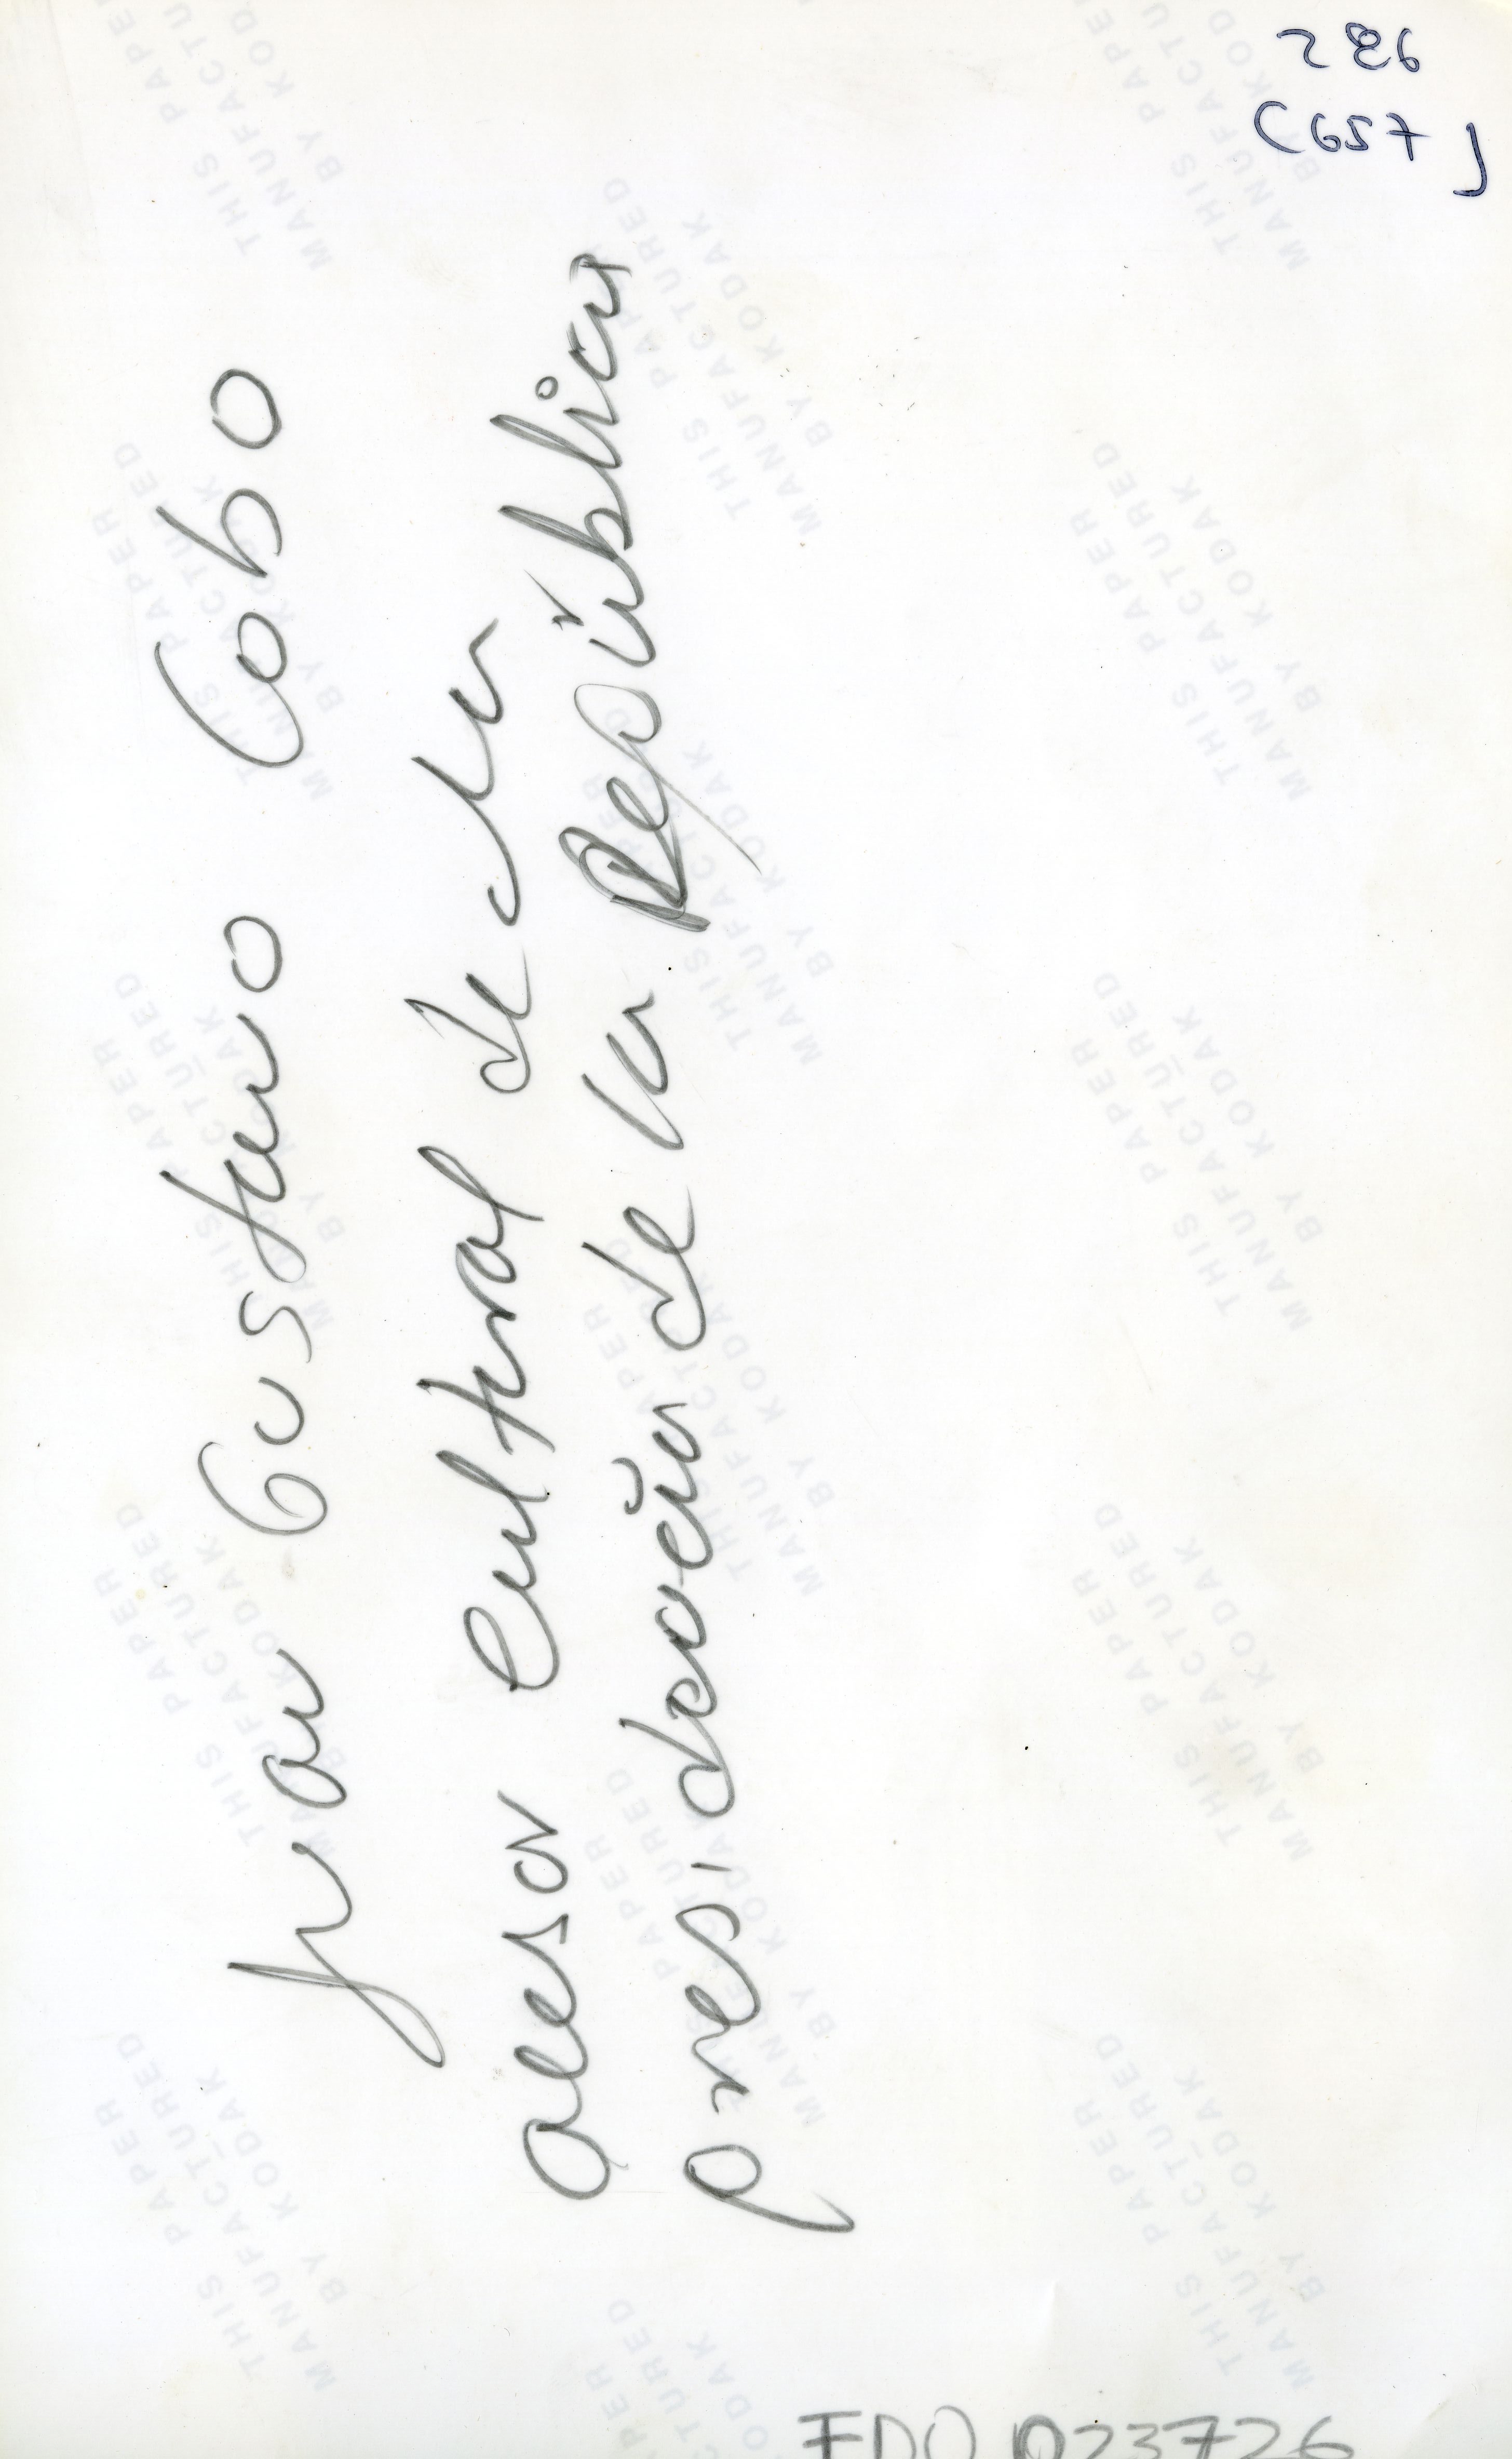 286
(657)
Juan Gustavo Cobo
asesor Cultural de la
presidencia de la República
FDO 023726
THIS PAPER
MANUFACTURED
BY KODAK